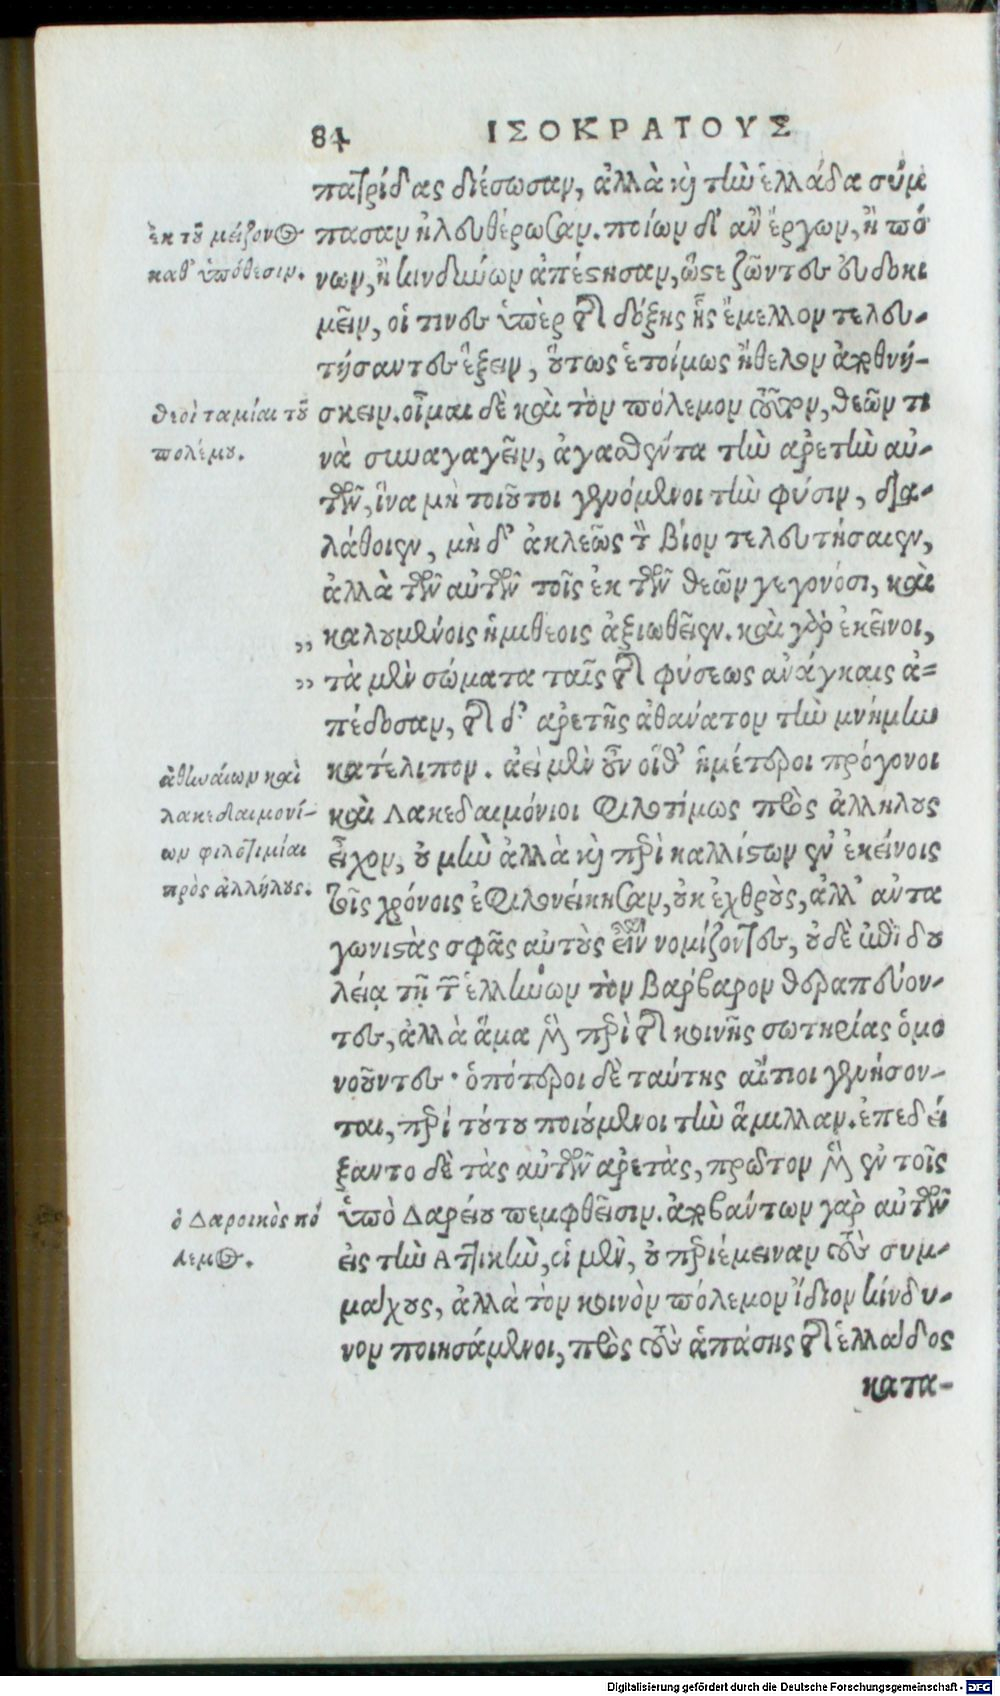 84 ΙΣΟΚΡΑΤΟΥΣ
πατρίδας διέσωσαν, ἀλλὰ καὶ τὴν ἑλλάδα σύμ
πασαν ἠλευθέρωσαν. ποίων δ' ἂν ἔργων, ἢ πό
νων, ἢ κινδύνων ἀπέστησαν, ὥστε ζῶντες εὐδοκι
μεῖν, οἵ τινες ὑπὲρ τῆς δόξης ἧς ἔμελλον τελευ-
τήσαντες ἕξειν, οὕτως ἑτοίμως ἤθελον ἀποθνή-
σκειν. οἶμαι δὲ καὶ τὸν πόλεμον τοῦτον, θεῶν τι
νὰ συναγαγεῖν, ἀγασθέντα τὴν ἀρετὴν αὐ-
τῶν, ἵνα μὴ τοιοῦτοι γενόμενοι τὴν φύσιν, δια-
λάθοιεν, μὴ δ' ἀκλεῶς τὸν βίον τελευτήσαιεν,
ἀλλὰ τῶν αὐτῶν τοῖς ἐκ τῶν θεῶν γεγονόσι, καὶ
„ καλουμένοις ἡμιθέοις ἀξιωθεῖεν. καὶ γὰρ ἐκεῖνοι,
„ τὰ μὲν σώματα ταῖς τῆς φύσεως ἀνάγκαις ἀ-
πέδοσαν, τῆς δ' ἀρετῆς ἀθάνατον τὴν μνήμην
κατέλιπον. ἀεὶ μὲν οὖν οἵθ' ἡμέτεροι πρόγονοι
καὶ Λακεδαιμόνιοι φιλοτίμως πρὸς ἀλλήλους
εἶχον, οὐ μὴν ἀλλὰ καὶ περὶ καλλίστων ἐν ἐκείνοις
τοῖς χρόνοις ἐφιλονείκησαν, οὐκ ἐχθροὺς, ἀλλ' ἀντα
γωνιστὰς σφᾶς αὐτοὺς εἶναι νομίζοντες, οὐδὲ ἐπὶ δου
λείᾳ τῇ τῶν ἑλλήνων τὸν Βάρβαρον θεραπεύον-
τες, ἀλλὰ ἅμα μὲν περὶ τῆς κοινῆς σωτηρίας ὁμο
νοοῦντες· ὁπότεροι δὲ ταύτης αἴτιοι γενήσον-
ται, περὶ τούτου ποιούμενοι τὴν ἅμιλλαν. ἐπεδεί
ξαντο δὲ τὰς αὐτῶν ἀρετὰς, πρῶτον μὲν ἐν τοῖς
ὑπὸ Δαρείου πεμφθεῖσιν. ἀποβάντων γὰρ αὐτῶν
εἰς τὴν Ἀττικὴν, οἱ μὲν, οὐ περιέμειναν τοὺς συμ-
μάχους, ἀλλὰ τὸν κοινὸν πόλεμον ἴδιον κίνδυ-
νον ποιησάμενοι, πρὸς τοὺς ἁπάσης τῆς ἑλλάδος
κατα-
ἐκ τοῦ μείζονος
καθ' ὑπόθεσιν.
θεοὶ ταμίαι τοῦ
πολέμου.
ἀθηναίων καὶ
λακεδαιμονί-
ων φιλοτιμίαι
πρὸς ἀλλήλους.
ὁ Δαρεικὸς πό
λεμος.
Digitalisierung gefördert durch die Deutsche Forschungsgemeinschaft - DFG